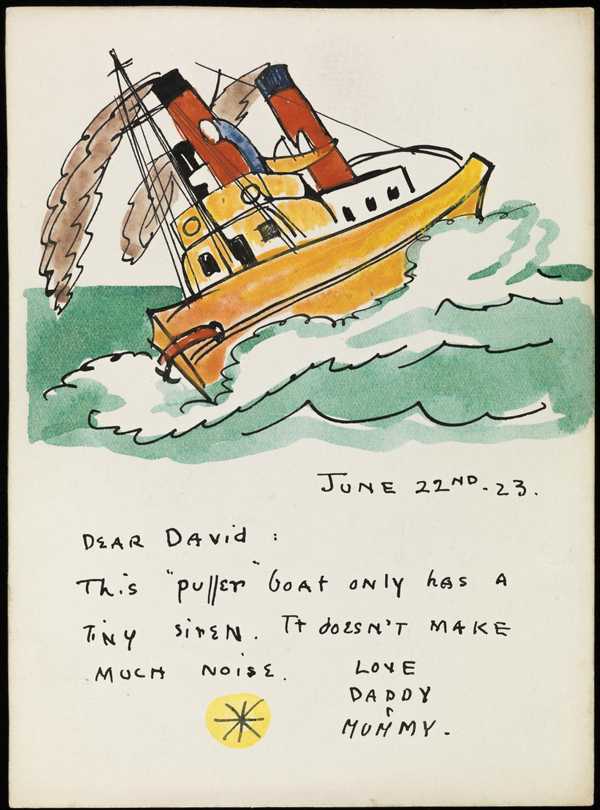 JUNE 22ND. 23.
DEAR DAVID :
THIS "PULLER" BOAT ONLY HAS A
TINY SIREN. IT DOESN'T MAKE
MUCH NOISE. LOVE
DADDY
MUMMY.